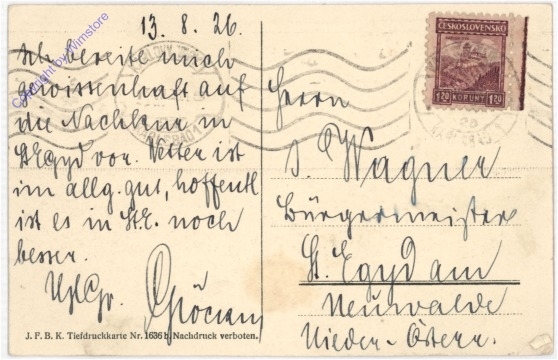 13. 8. 26.
Ich bereite mich
gewissenhaft auf
die Nachkur in
St Egyd vor. Wetter ist
im allg. gut, hoffentl.
ist es in St. E. noch
besser.
J. F. B. K. Tiefdruckkarte Nr. 1636 b Nachdruck verboten.
ČESKOSLOVENSKO
1.20 KORUNY 1.20
Herrn
J. Wagner
Bürgermeister
St. Egyd am
Neuwalde
Nieder-Österr.
Copyright by Wimstore